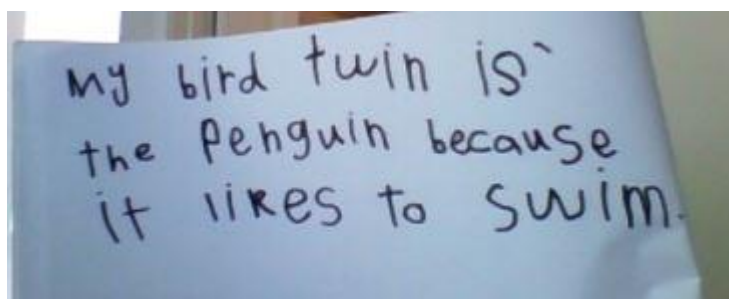 My bird twin is
the Penguin because
it likes to swim.